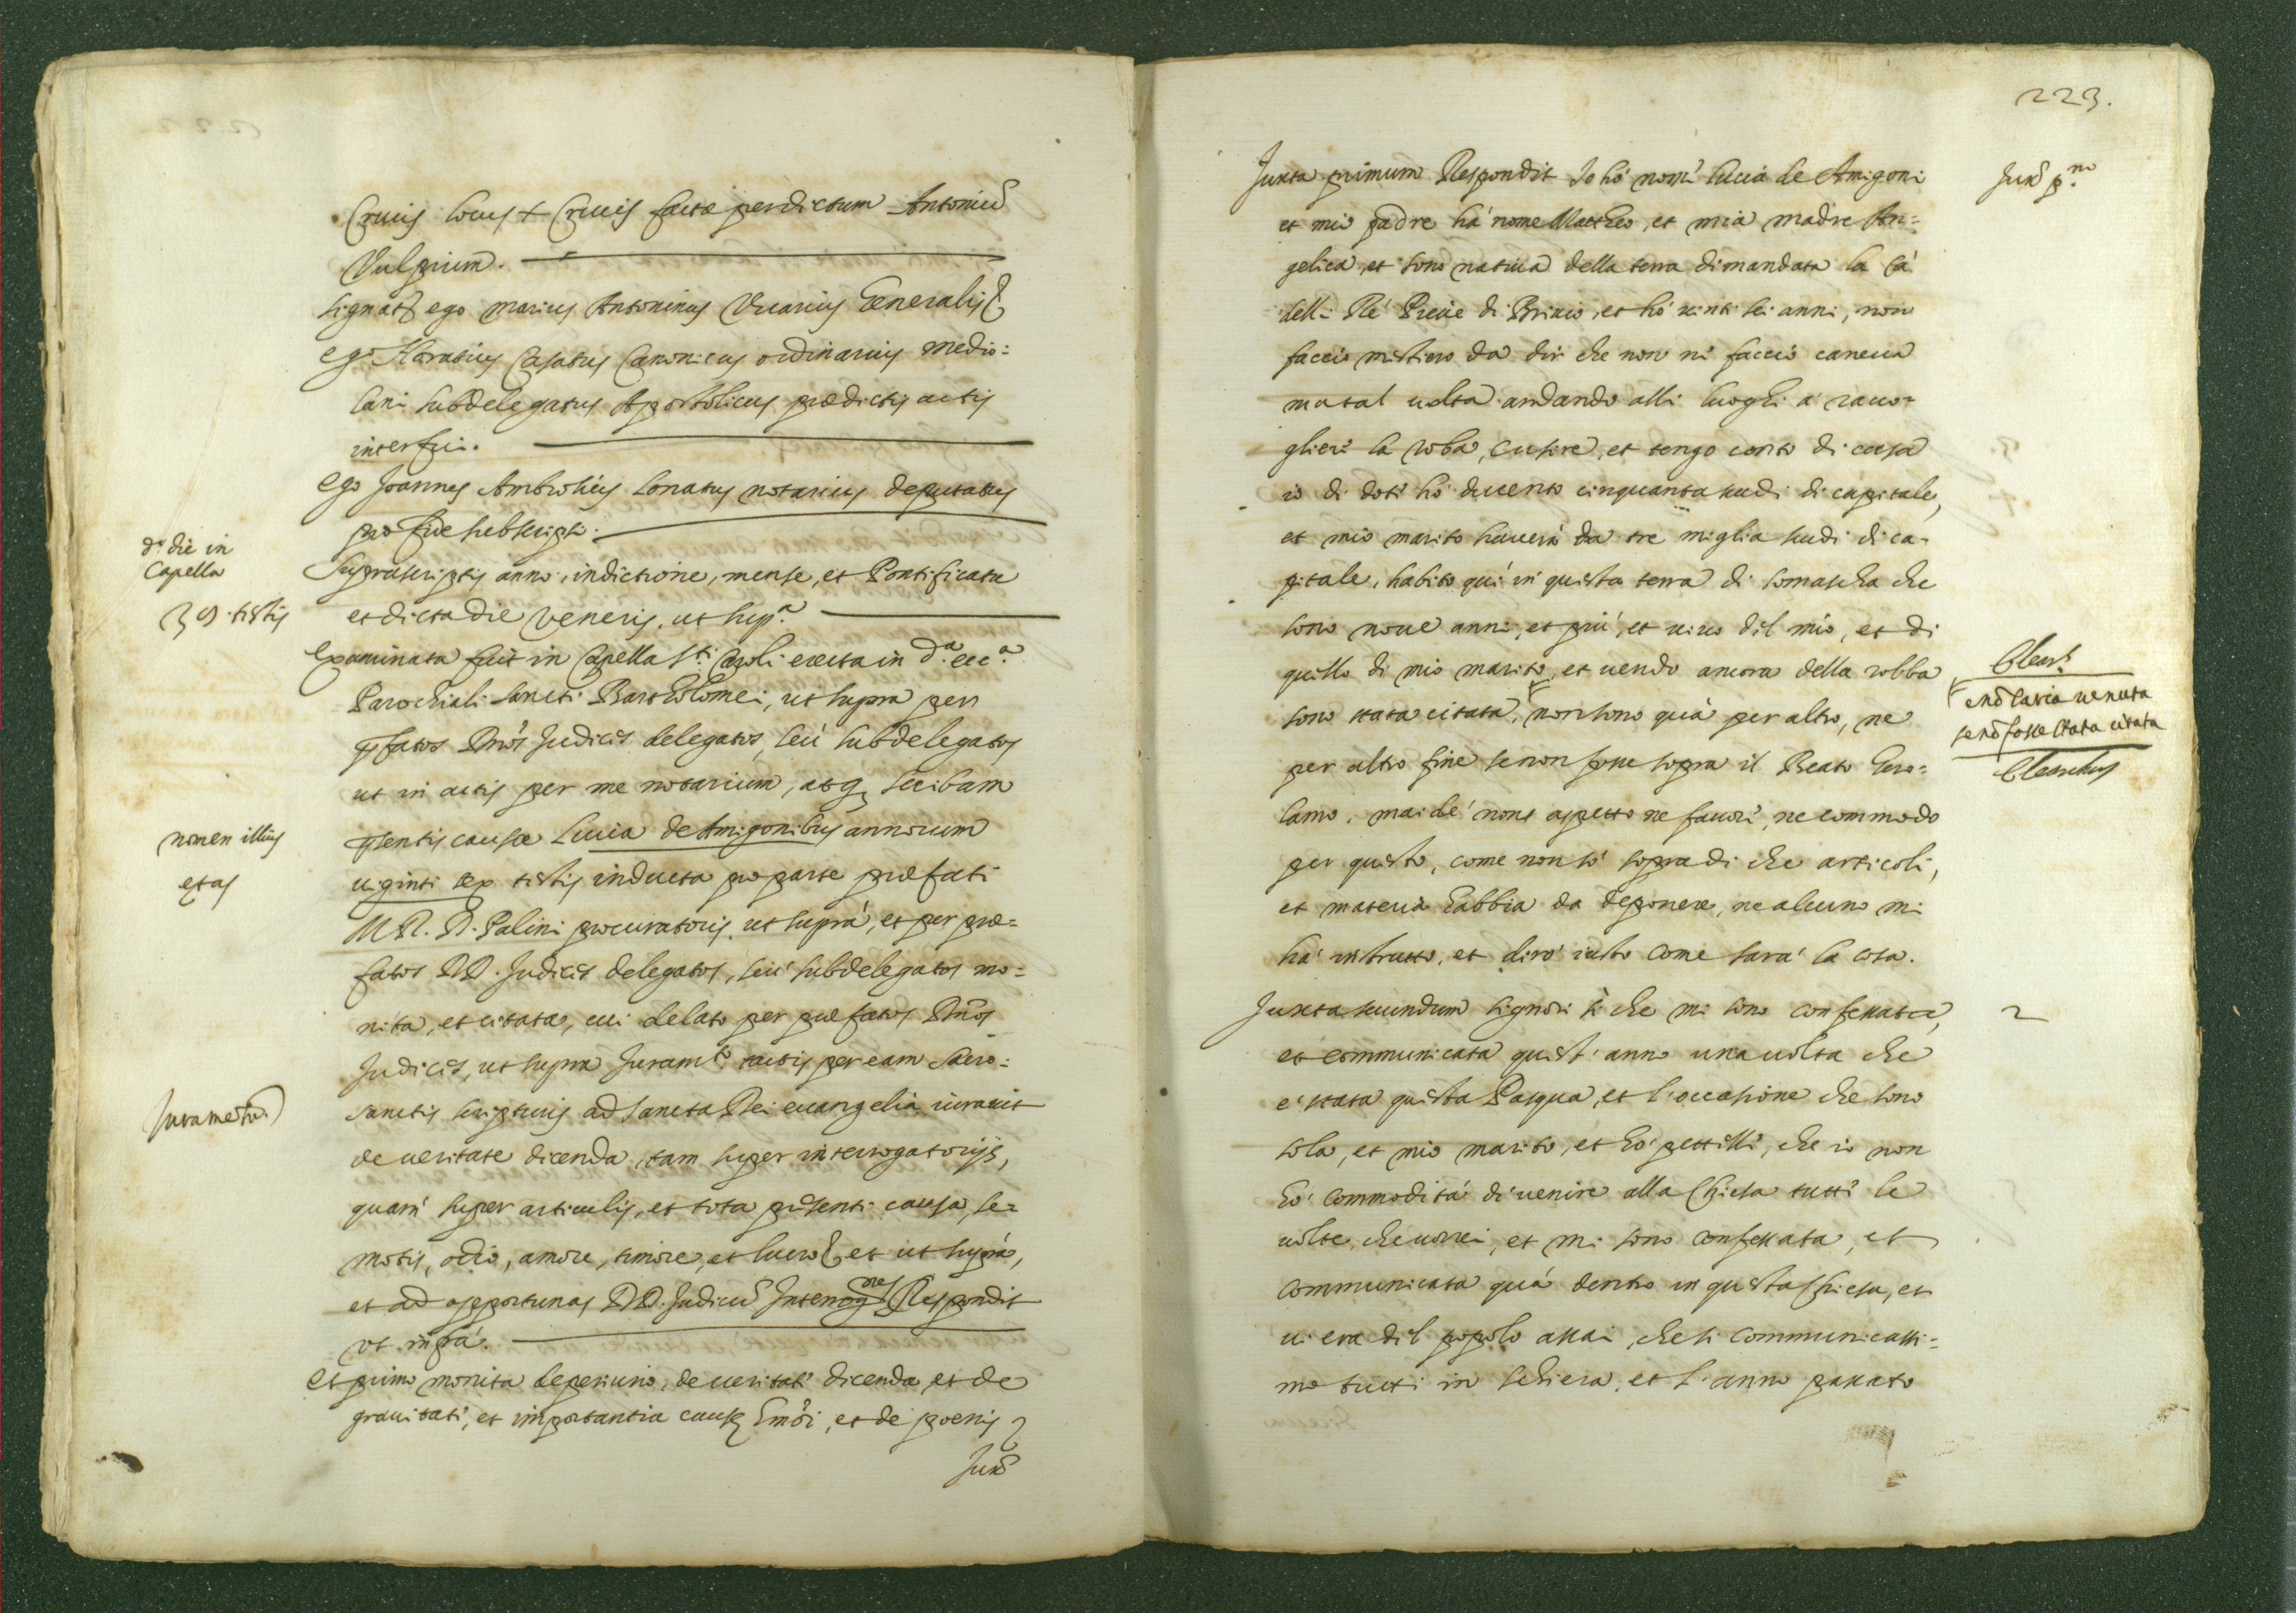 Crucis locus + Crucis factæ per dictum Antoniũ
Vulpium.
signat ego Marius Antoninus Vicarius Generalis
ego Horatius Casatus Canonicus ordinarius Medio:
lani subdelegatus Apostolicus prædictis actis
interfui.
ego Joannes Ambrosius Lonatus notarius deputatus
pro fide subscripsi.
dᵃ die in
Capella
39 testis
Suprascriptis anno, indictione, mense, et Pontificatu
et dicta die Veneris, ut supᵃ
Examinata fuit in Capella Sᵗⁱ Caroli erecta in dᵃ eccᵃ
Parochiali Sancti Bartholomei, ut supra per
pfatos Dños Judices delegatos, seù subdelegatos
ut in actis per me notarium, atq scribam
pſentis causæ Lucia de Amigonibus annorum
nomen illius
etas
uiginti sex testis inducta pro parte præfati
M. R. D. Palini procuratoris, ut suprà, et per præ=
fatos DD. Judices delegatos, seù subdelegatos mo=
nita, et citata, cui delato per præfatos Dños
Judices, ut supra Juramᵗᵒ tactis per eam Sacro=
Jurametũ
sanctis scripturis ad Sancta Dei euangelia iurauit
de ueritate dicenda, tam super interrogatorijs,
quam super articulis, et tota pñsenti causa, re=
motis, odio, amore, timore, et lucro et ut suprà,
et ad opportunas DD. Judicũ Interrogⁿᵉˢ Respondit
vt infra.
Et primo monita de periurio, de ueritate dicenda, et de
grauitate, et importantia causæ Emõi, et de poenis
Juxᵃ
223.
Juxta primum Respondit Io hò nome Lucia de Amigoni
Juxᵃ pᵐᵒ
et mio padre hà nome Mattheo, et mia madre An=
gelica, et sono natiua della terra dimandata la Cà
delli Rè Pieue di Briuio, et hò uinti sei anni, non
faccio mistiero da dir che non ni faccio caneua
ma tal uolta andando alli luoghi à racco=
gliere la roba, cusire, et tengo conto di casa
io di dote hò ducento cinquanta scudi di capitale,
et mio marito hauerà da tre miglia scudi di ca=
pitale, habito quì in questa terra di Somascha che
sono noue anni, et più, et uiuo dil mio, et di
quello di mio marito, et uendo ancora della robba
sono stata citata, non sono quà per altro, ne
e nõ saria uenuta
se nõ fosse stata citata
per altro fine se non fosse sopra il Beato Gero=
lamo, mai dè non aspetto ne fauore, ne commodo
per questo, come non sò sopra di che articoli,
et materia habbia da deponere, ne alcuno mi
hà instrutto, et dirò iusto come sarà la cosa.
Juxta secundum signori sì che mi sono confessata,
2
et communicata quest' anno una uolta che
è stata questa Pasqua, et l'occasione che sono
sola, et mio marito, et hò pettilli, che io non
hò commodità di uenire alla Chiesa tutte le
uolte, che uorrei, et mi sono confessata, et
communicata quà dentro in questa Chiesa, et
ui era dil popolo assai, che si communicassi=
mo tutti in schiera, et l'anno passato